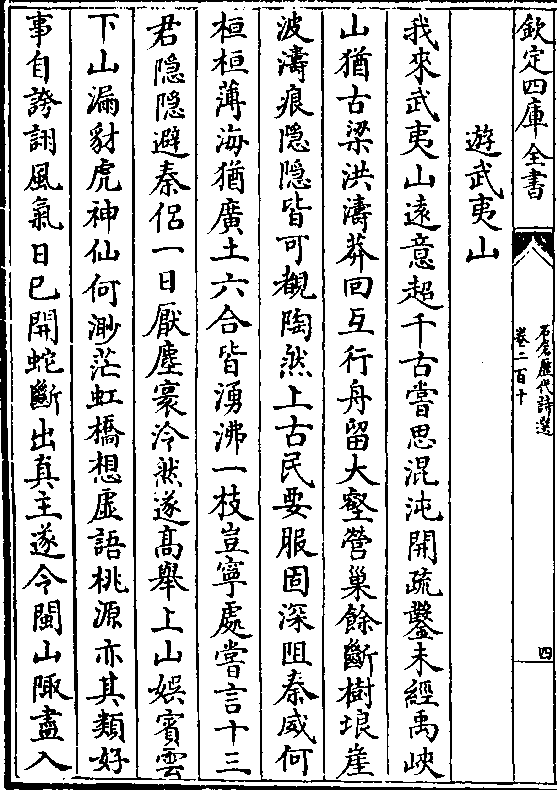 欽定四庫全書
石倉歷代詩選
卷二百十
四
遊武夷山
我來武夷山遠意超千古嘗思混沌開疏鑿未經禹峽
山猶古梁洪濤莽回互行舟留大壑營巢餘斷樹垠崖
波濤痕隠隠皆可覩陶然上古民要服固深阻秦威何
桓桓薄海猶廣土六合皆湧沸一枝豈寧處嘗言十三
君隠隠避秦侶一日厭塵豪泠然遂髙舉上山娯賓雲
下山漏豺虎神仙何渺茫虹橋想虚語桃源亦其類好
事自誇詡風氣日已開蛇斷出真主遂令閩山陬盡入